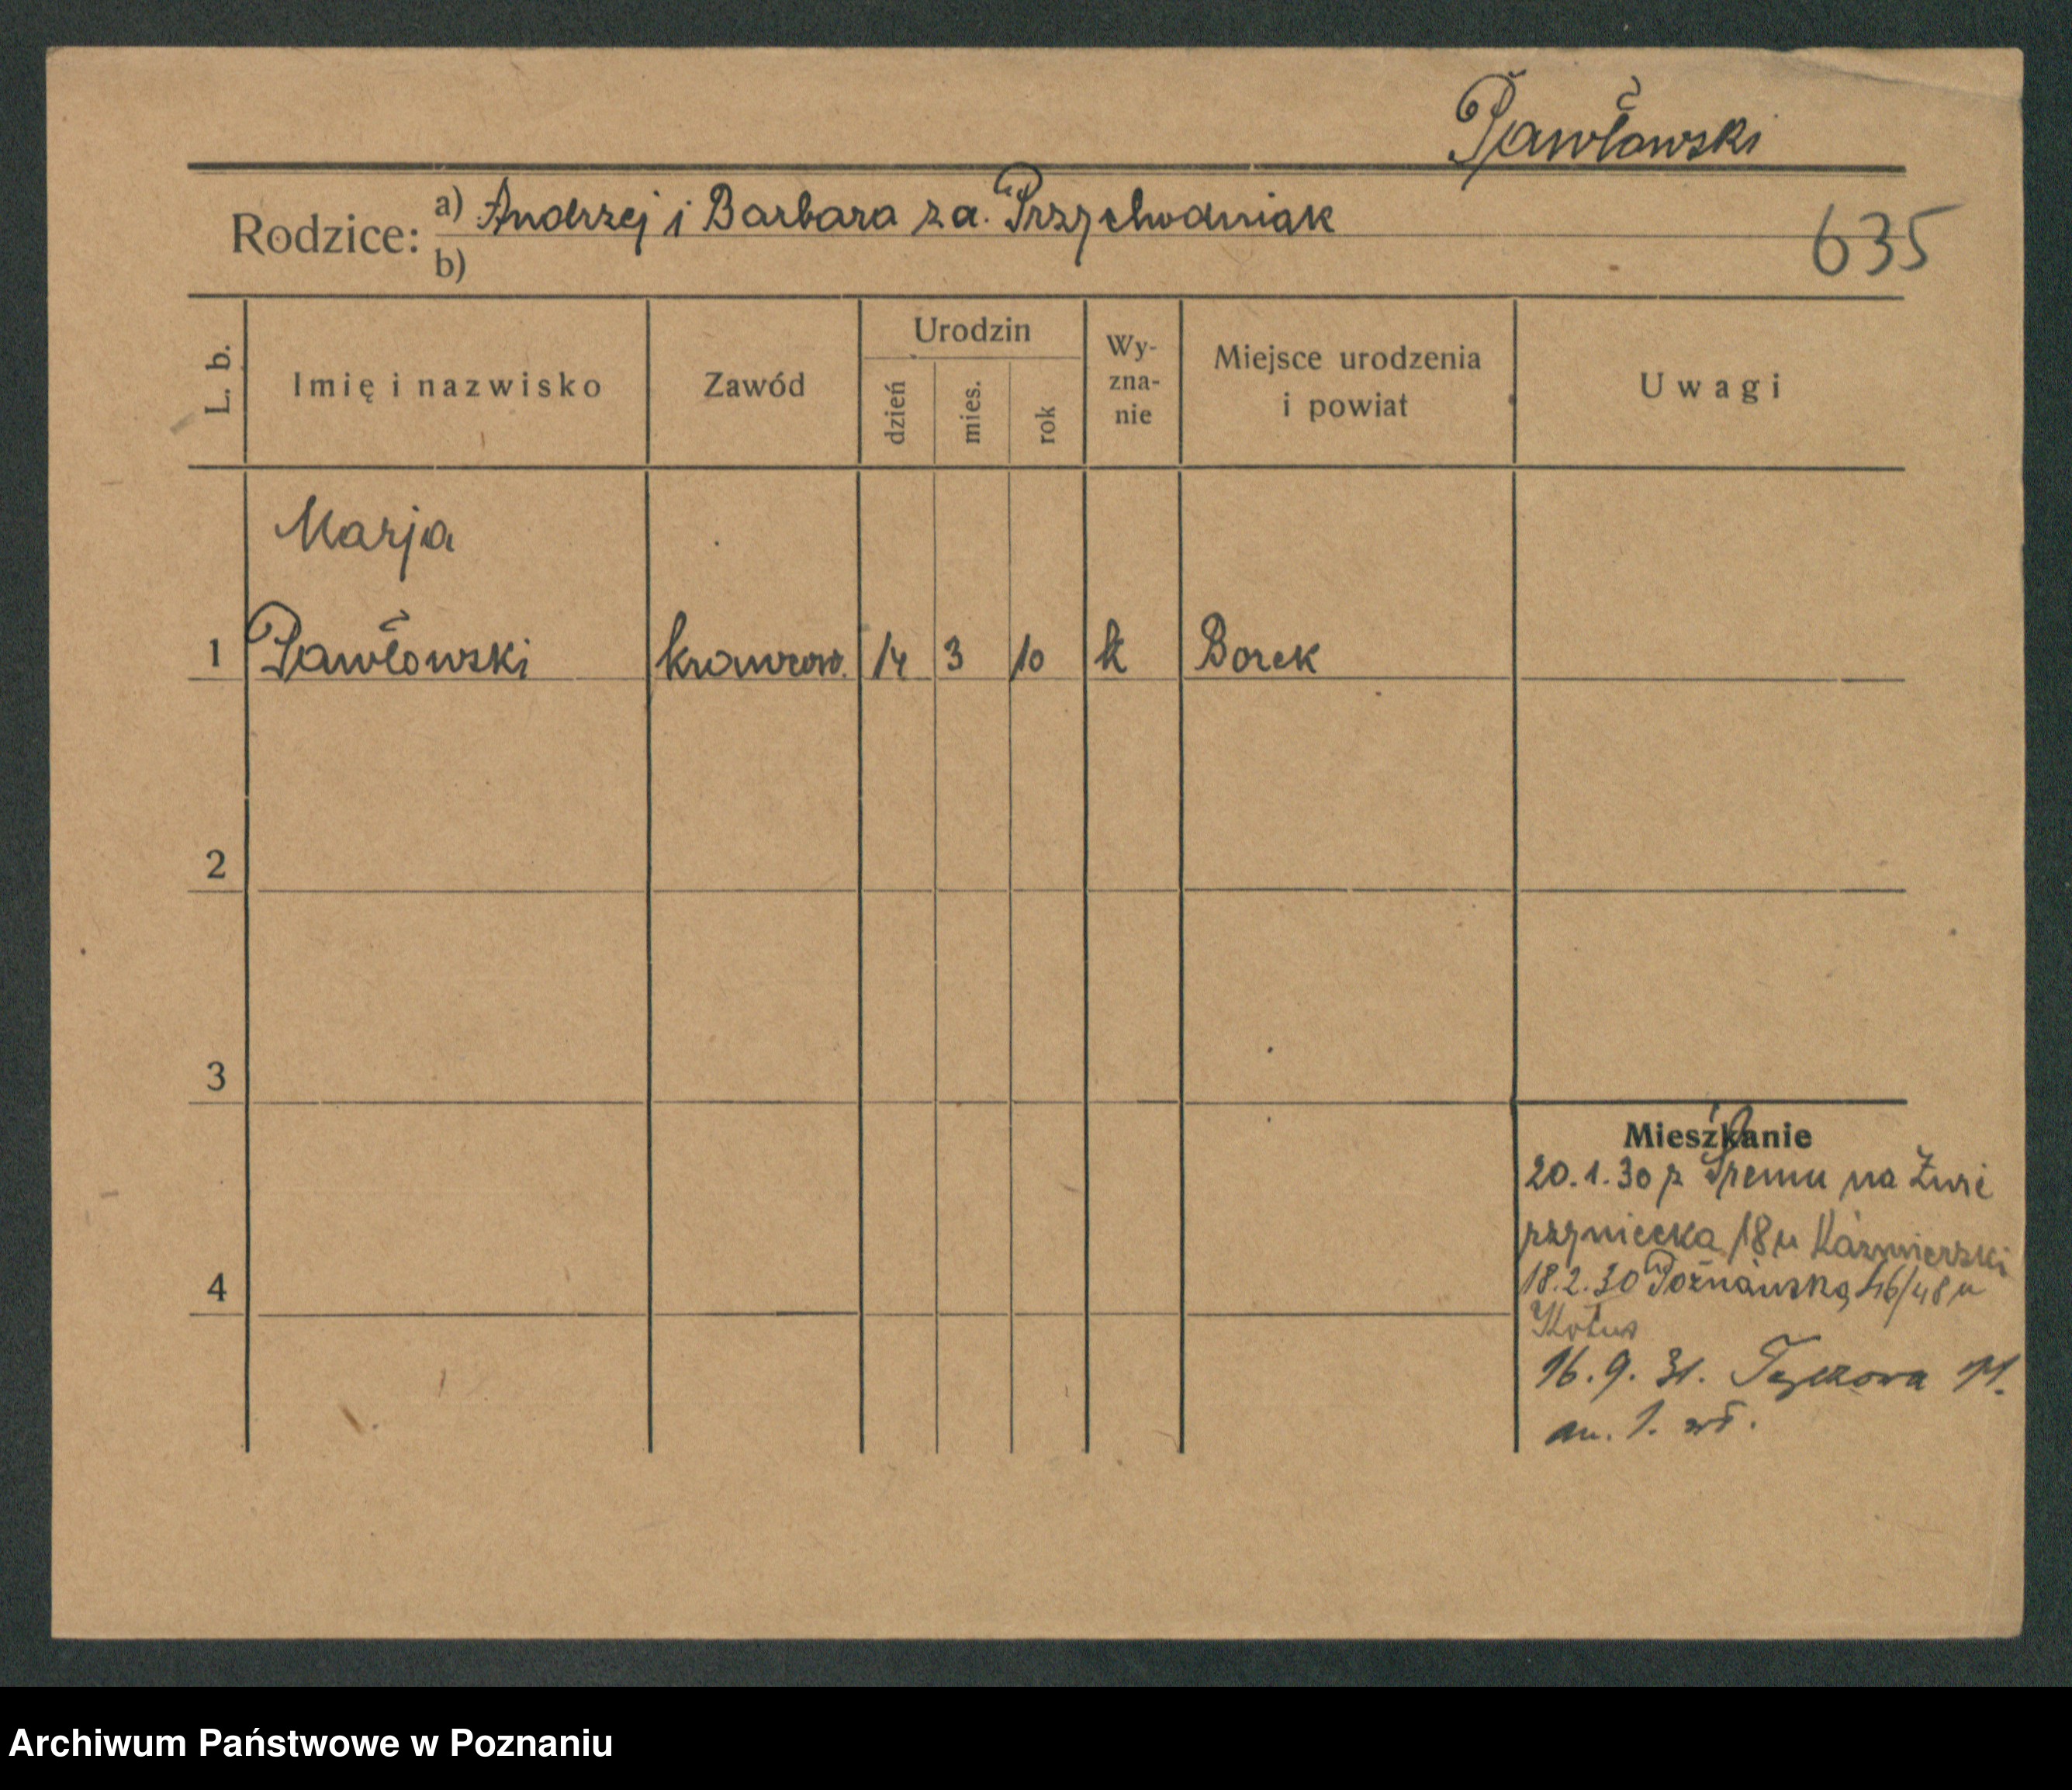 Pawłowski
Rodzice: a) Andrzej i Barbara za. Przychodniak
b)
635
L. b.
Imię i nazwisko
Zawód
Urodzin
dzień
mies.
rok
Wy-
zna-
nie
Miejsce urodzenia
i powiat
Uwagi
Marja
1 Pawłowski krawcow. 14 3 10 k Borek
2
3
4
Mieszkanie
20.1.30 z Śremu na Zwie
rzyniecka 18 u Kaźmierski
18.2.30 Poznańską 46/48 u
16.9.31. 11.
m. 1. wł.
Archiwum Państwowe w Poznaniu